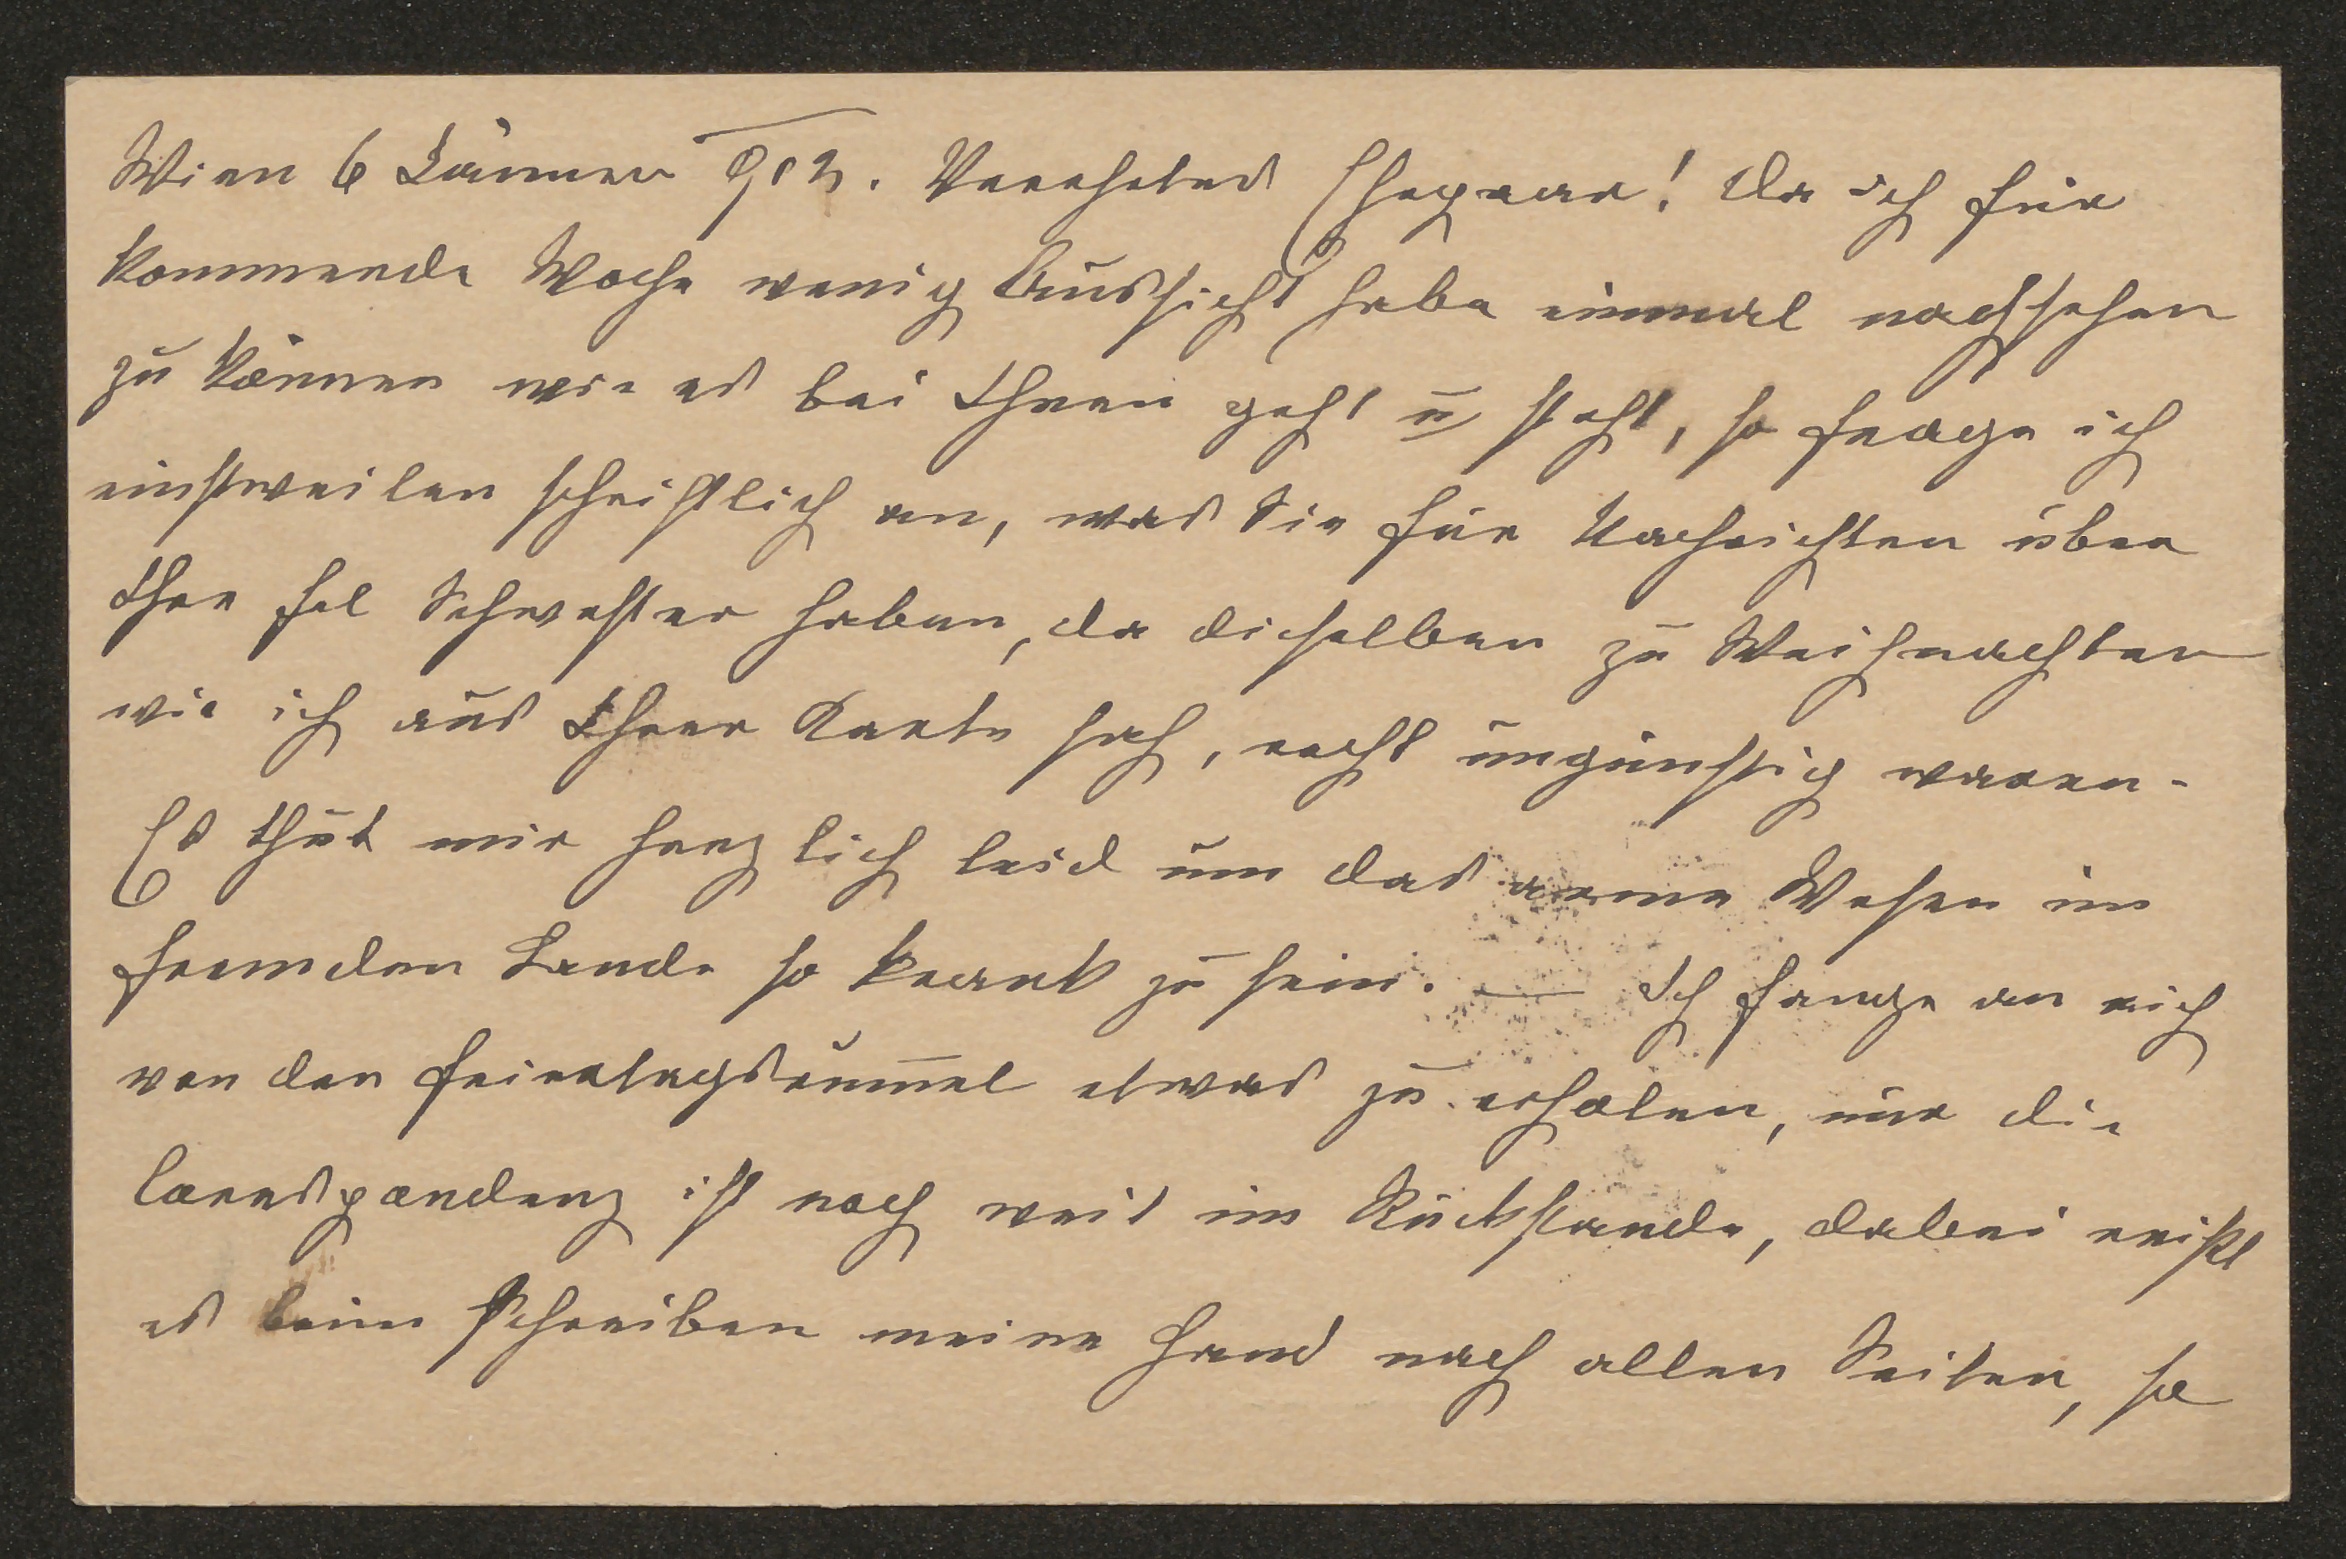 Wien 6 Jänner 912. Verehrtes Ehepaar! Da ich für
kommende Woche wenig Aussicht habe einmal nachsehen
zu können wie es bei Ihnen geht u steht, so frage ich
einstweilen schriftlich an, was Sie für Nachrichten über
Ihre Frl Schwester haben, da dieselben zu Weihnachten
wie ich aus Ihrer Karte sah, recht ungünstig waren.
Es thut mir herzlich leid um das arme Wesen im
fremden Lande so krank zu sein. — Ich fange an mich
von den Feiertagsrum̅el etwas zu erholen, nur die
Correspondenz ist noch weit im Rückstande, dabei reißt
es beim Schreiben meine Hand nach allen Seiten, so